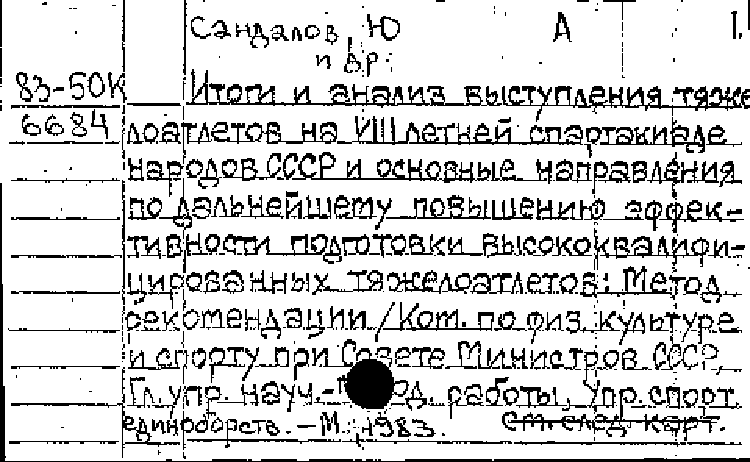 Сандалов, Ю А 1.
и др.
83-50К Итоги и анализ выступления тяже
6684 лоатлетов на VIII летней спартакиаде
народов СССР и основные направления
по дальнейшему повышению эффек-
тивности подготовки высококвалифи-
цированных тяжелоатлетов: Метод.
рекомендации /Ком. по физ. культуре
и спорту при Совете Министров СССР,
Гл. упр. науч.- работы, Упр. спорт.
единоборств. - М., 1983. См. след. карт.